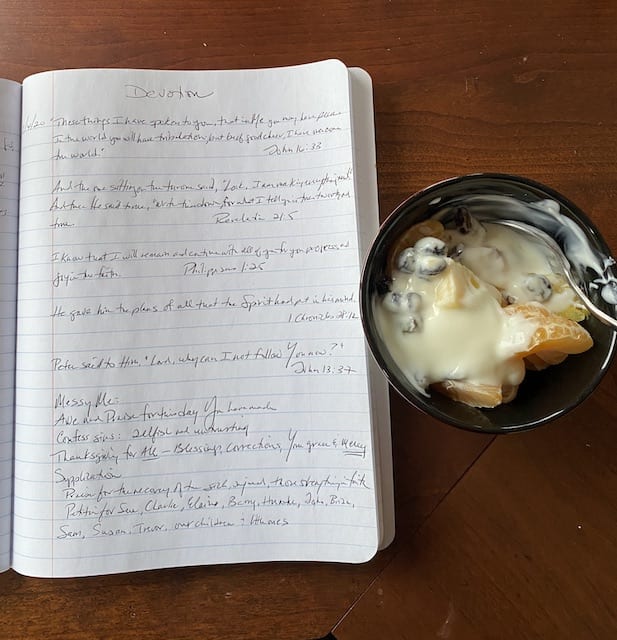 Devotion
"These things I have spoken to you, that in Me you may have peace
In the world you will have tribulation, but be of good cheer, I have overcome
the world."
John 16:33
And the one sitting on the throne said, "Look, I am making everything new"
And then He said to me, "Write this down, for what I tell you is trustworthy and
true.
Revelation 21:5
I know that I will remain and continue with all of you for your progress and
joy in the faith.
Philippians 1:25
He gave him the plans of all that the Spirit had put in his mind.
1 Chronicles 28:12
Peter said to Him, "Lord, why can I not follow You now?"
John 13:37
Messy Me:
Awe and Praise for this day You have made
Confess sins: selfish and untrusting
Thanksgiving for All - Blessings, Corrections, You grace & Mercy
Supplication
for the recovery of the sick, injured, those in faith
Petition for Sue, Charlie, Elaine, Barry, John, Brian,
Sam, Susan, Trevor, our children &